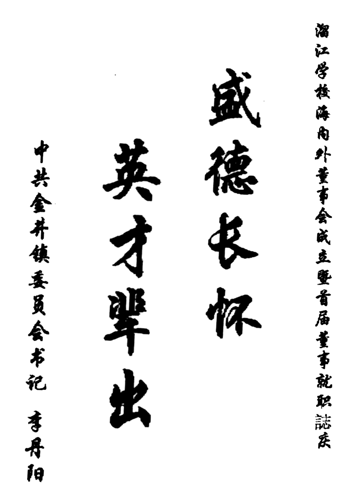 溜江学校海内外董事会成立暨首届董事就职誌庆
盛德长怀
英才辈出
中共金井镇委员会书记 李丹阳